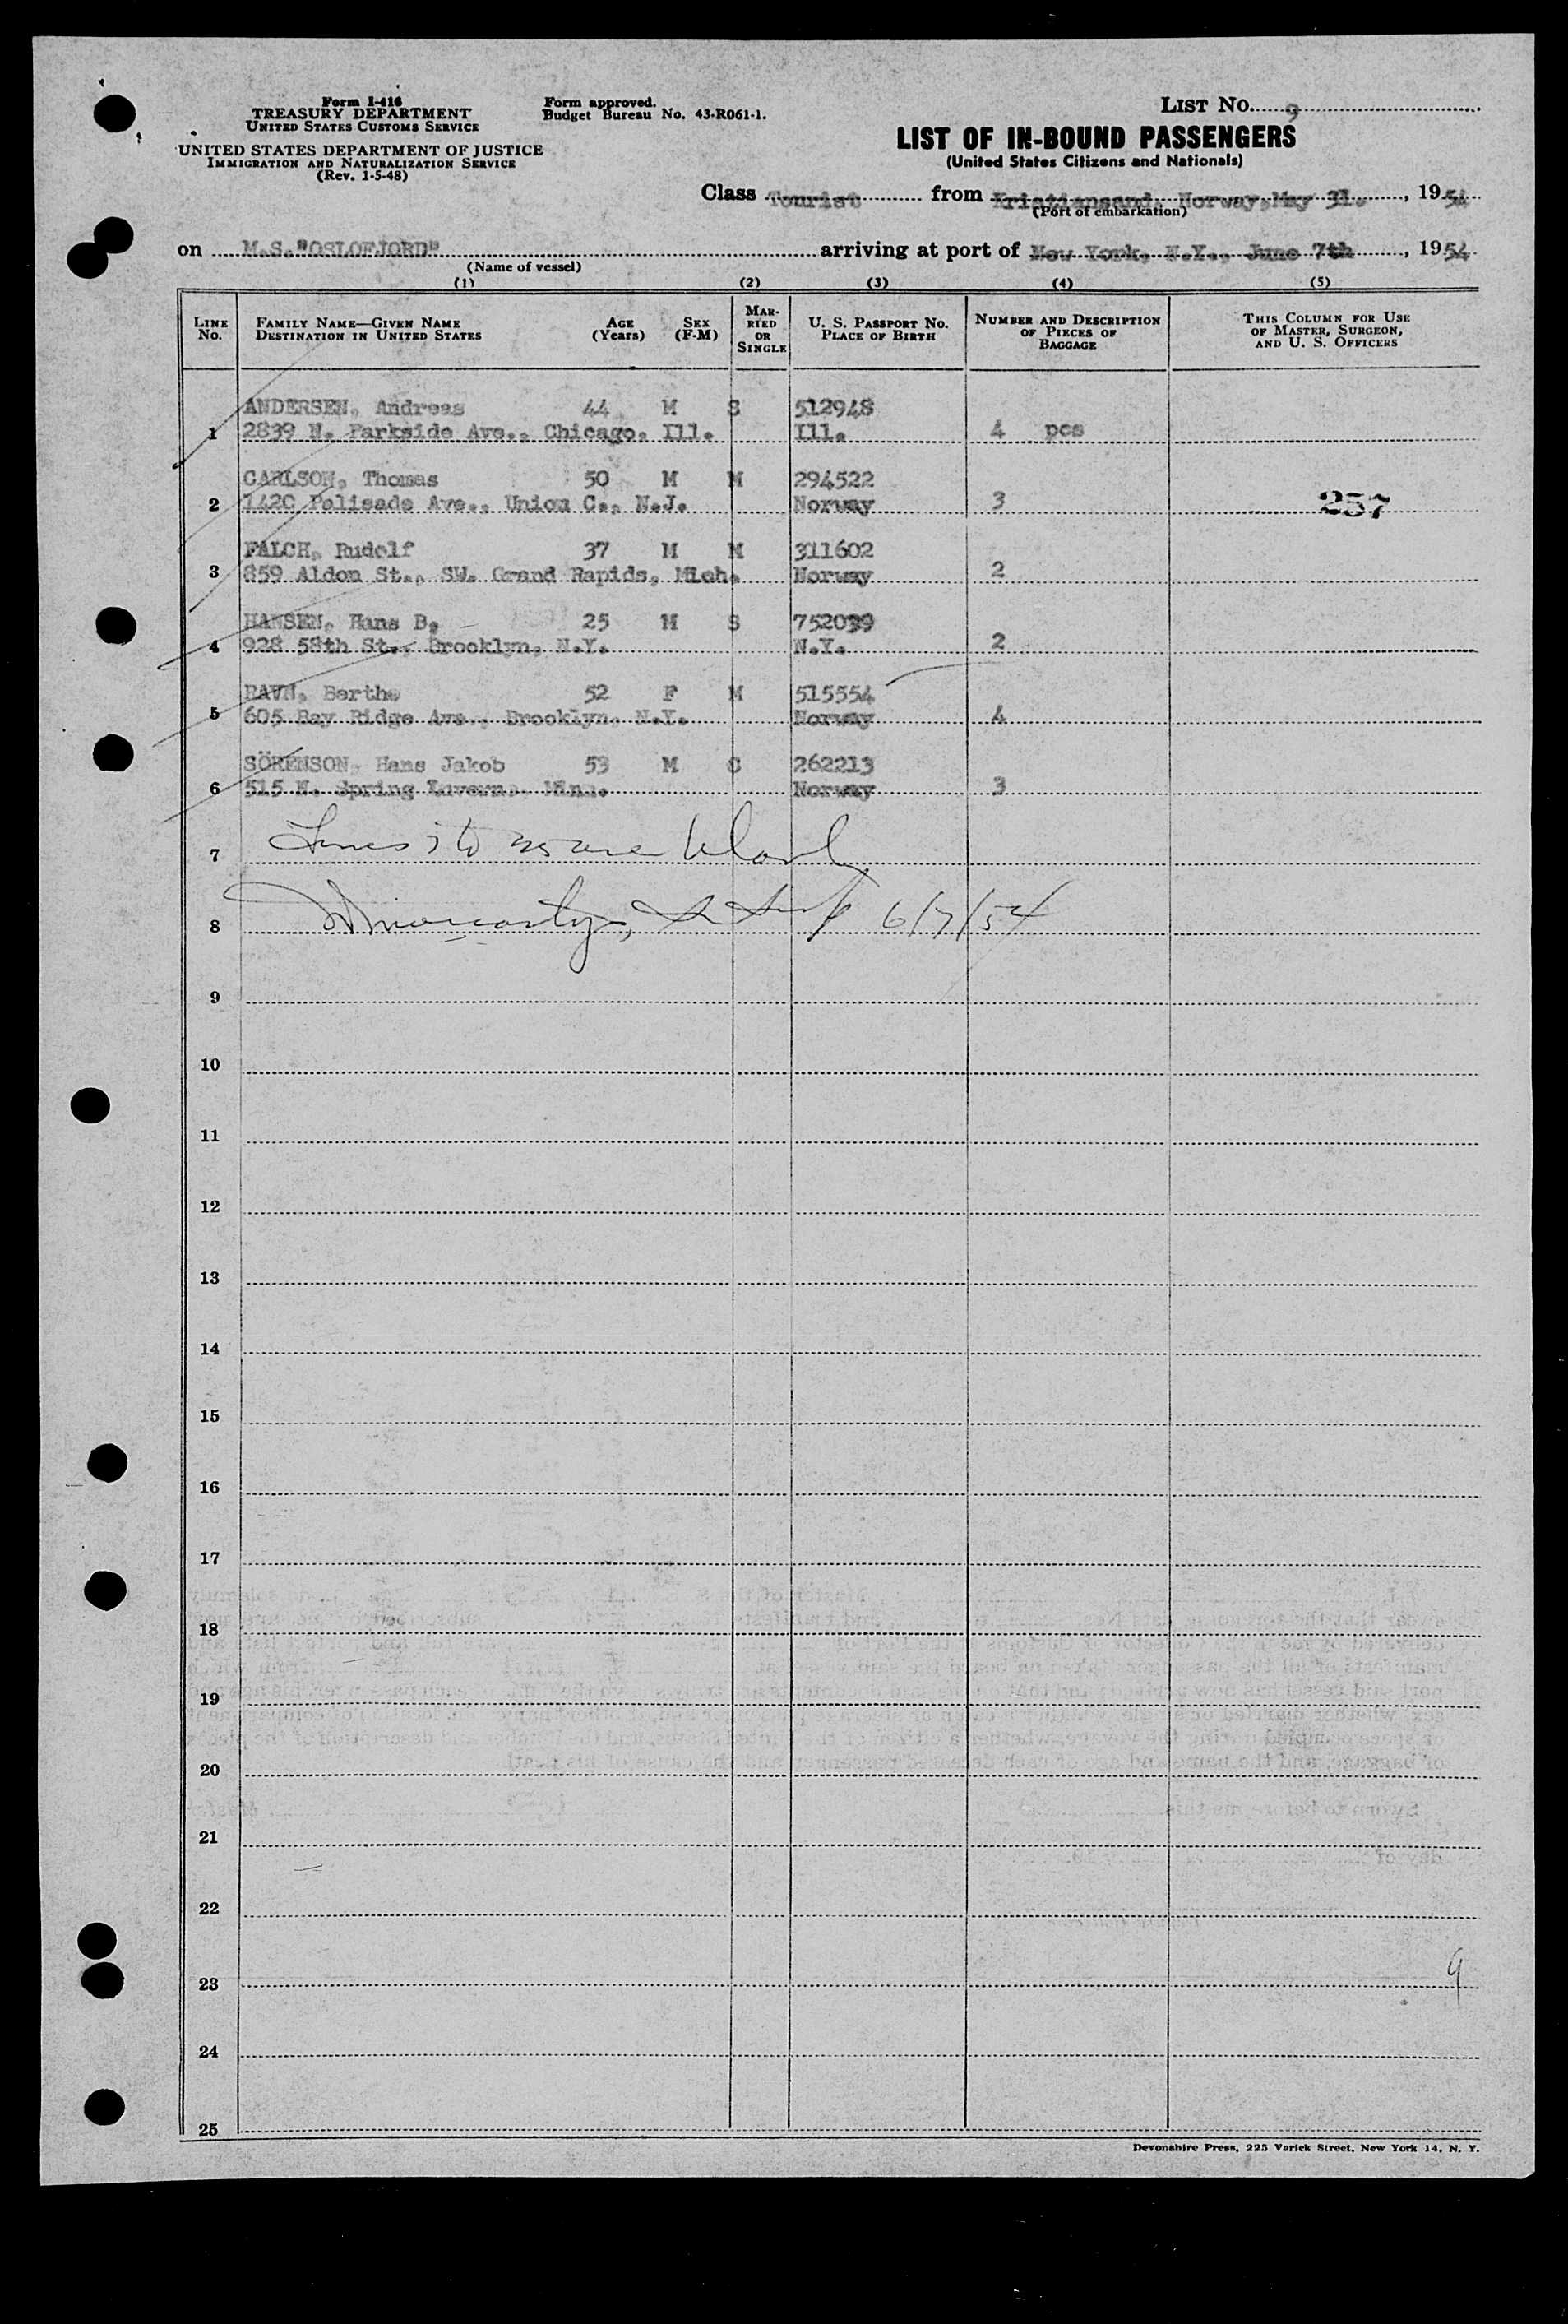 Form I-416
TREASURY DEPARTMENT
UNITED STATES CUSTOMS SERVICE
UNITED STATES DEPARTMENT OF JUSTICE
IMMIGRATION AND NATURALIZATION SERVICE
(Rev. 1-5-48)
Form approved.
Budget Bureau No. 43-R061-1.
LIST NO. 9
LIST OF IN-BOUND PASSENGERS
(United States Citizens and Nationals)
Class Tourist from Kristiansand, Norway, May 31. , 1954
(Port of embarkation)
on M.S."OSLOFJORD" arriving at port of New York, N.Y., June 7th , 1954
(Name of vessel)
(1) (2) (3) (4) (5)
LINE No. FAMILY NAME—GIVEN NAME DESTINATION IN UNITED STATES AGE (Years) SEX (F-M) MARRIED OR SINGLE U. S. PASSPORT NO. PLACE OF BIRTH NUMBER AND DESCRIPTION OF PIECES OF BAGGAGE THIS COLUMN FOR USE OF MASTER, SURGEON, AND U. S. OFFICERS
ANDERSEN, Andreas 44 M S 512948
1 2839 N. Parkside Ave., Chicago, Ill. Ill. 4 pcs
CARLSON, Thomas 50 M M 294522
2 1420 Palisade Ave., Union C., N.J. Norway 3 257
FALCH, Rudolf 37 M M 311602
3 859 Aldon St., SW. Grand Rapids, Mich. Norway 2
HANSEN, Hans B. 25 M S 752039
4 928 58th St., Brooklyn, N.Y. N.Y. 2
RAVN, Berthe 52 F M 515554
5 605 Bay Ridge Ave., Brooklyn, N.Y. Norway 4
SÖRENSON, Hans Jakob 53 M S 262213
6 515 N. Spring Luverne, Minn. Norway 3
7 Lines 7 to 25 are blank
8 6/7/54
9
10
11
12
13
14
15
16
17
18
19
20
21
22
23 9
24
25
Devonshire Press, 225 Varick Street, New York 14, N. Y.